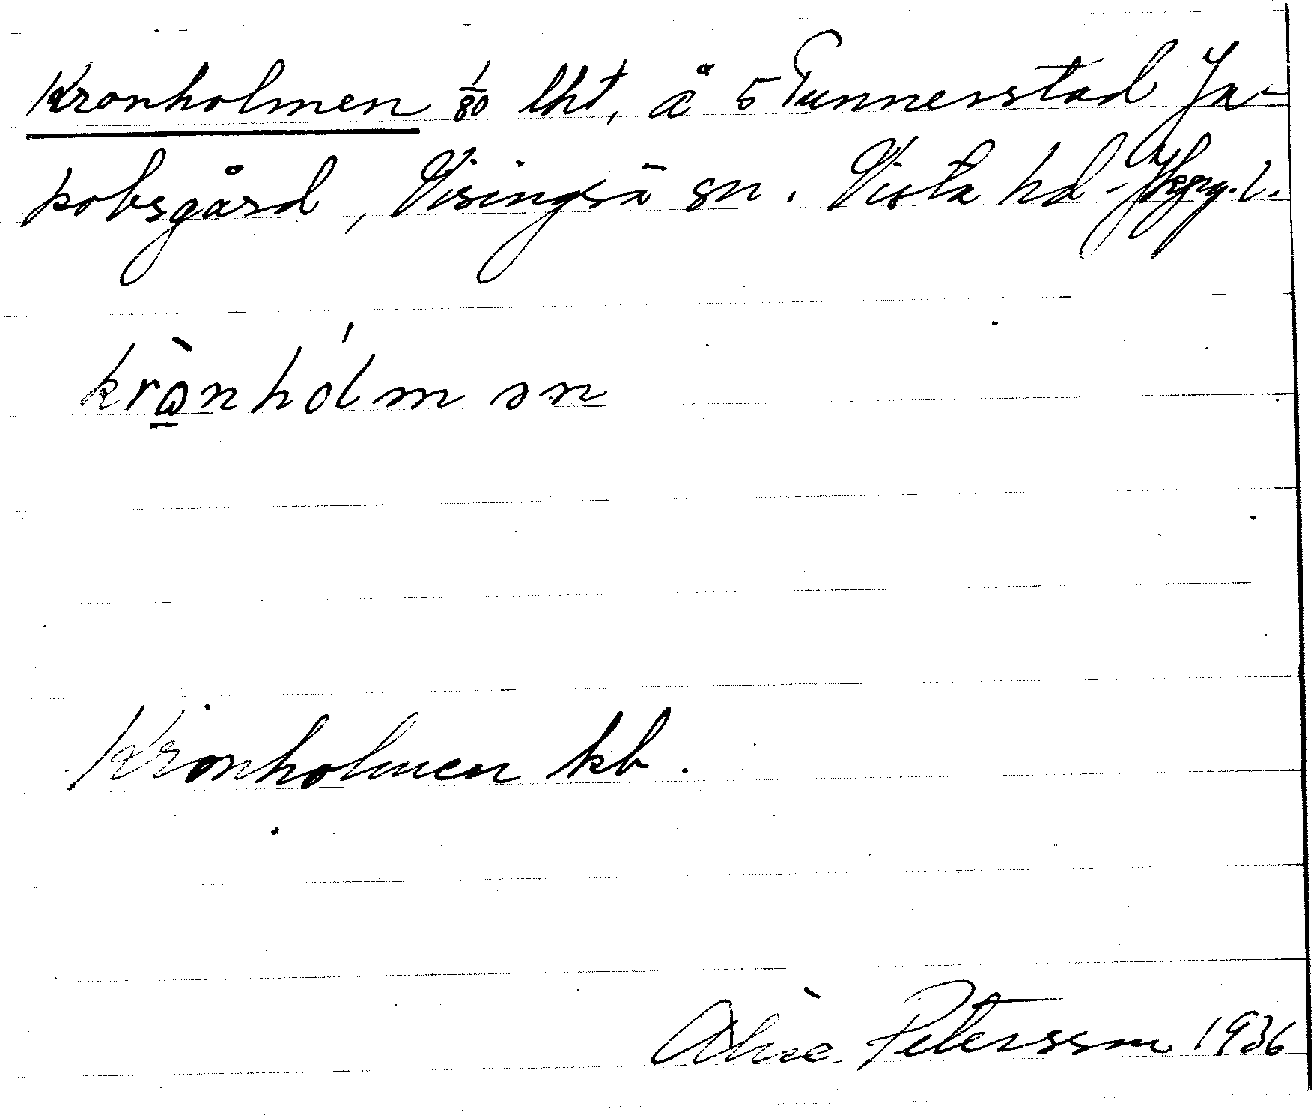 Kronholmen 1/80 lht, å 5 Tunnerstad Ja-
kobsgård, Visingsö sn. Vista hd Jkpg. l.
krὰnhólmən
Kronholmen kb.
Petersson 1936